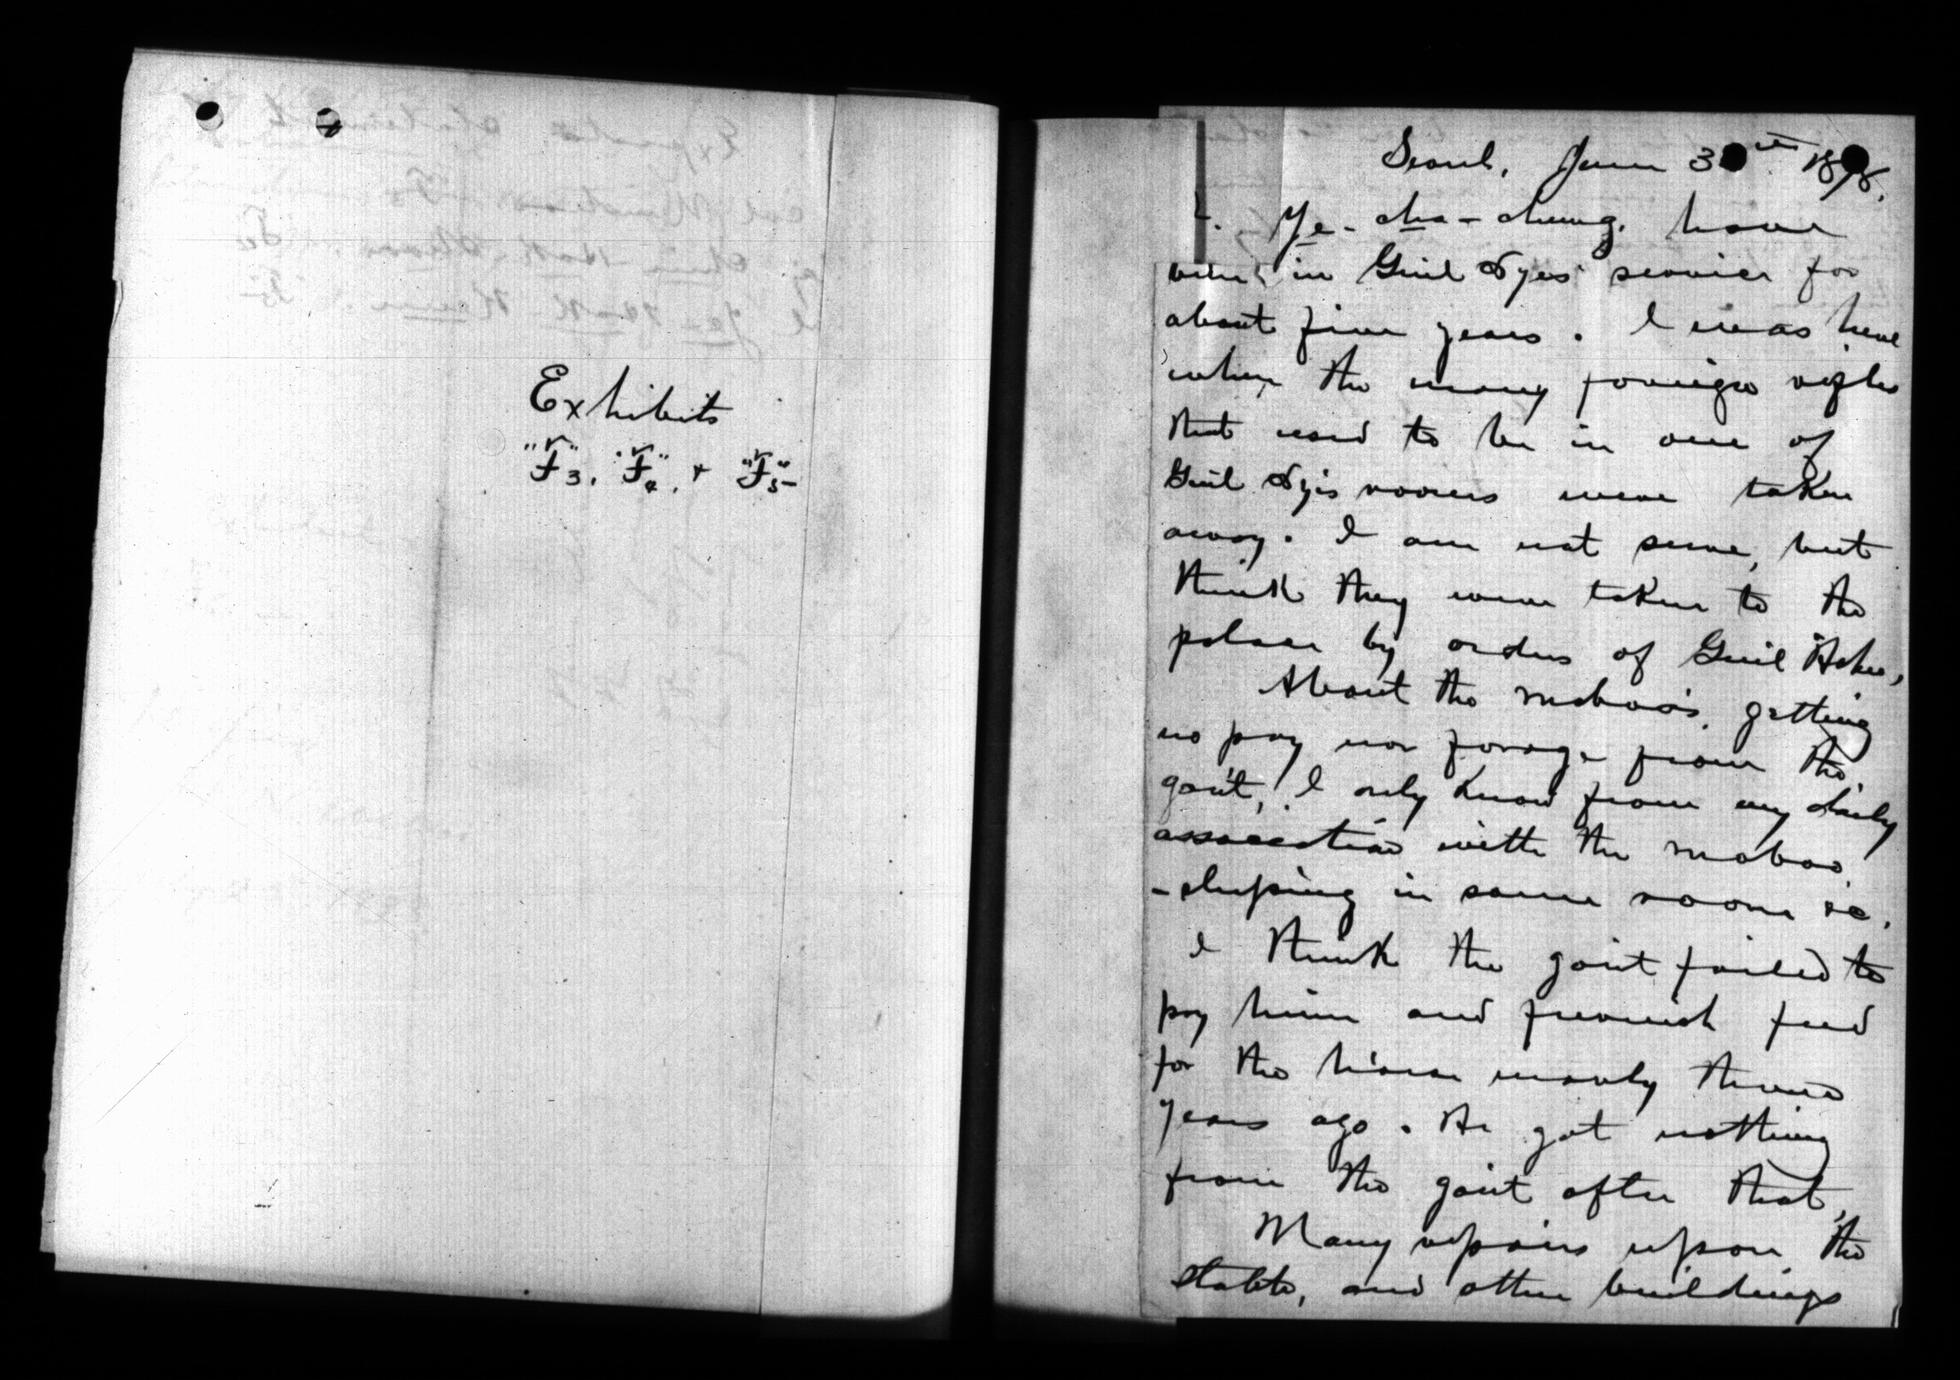 Exhibits
"F"3, "F"4, + "F"5
Seoul, June 3 th 18 8.
I. Ye-cha-chung, have
been in Gen'l Dyes' service for
about five years. I was here
when the many foreign rifles
that used to be in one of
Gen'l Dye's rooms were taken
away. I am not sure, but
think they were taken to the
palace by orders of Gen'l
About the maboo's, getting
no pay nor forage from the
gov't, I only know from my daily
association with the maboo,
- sleeping in same room &c.
I think the gov't failed to
pay him and furnish feed
for the horse nearly three
years ago. He got nothing
from the gov't after that,
Many repairs upon the
stable, and other buildings